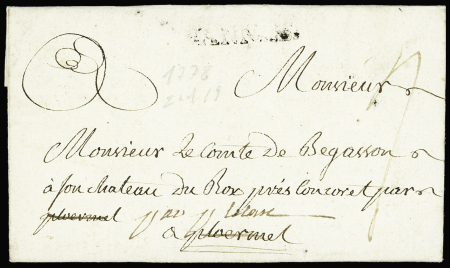 1778
Monsieur
Monsieur Le Comte de Begasson
à son chateau du Rox prés Concoret par
ploermel par plelan
a ploermel